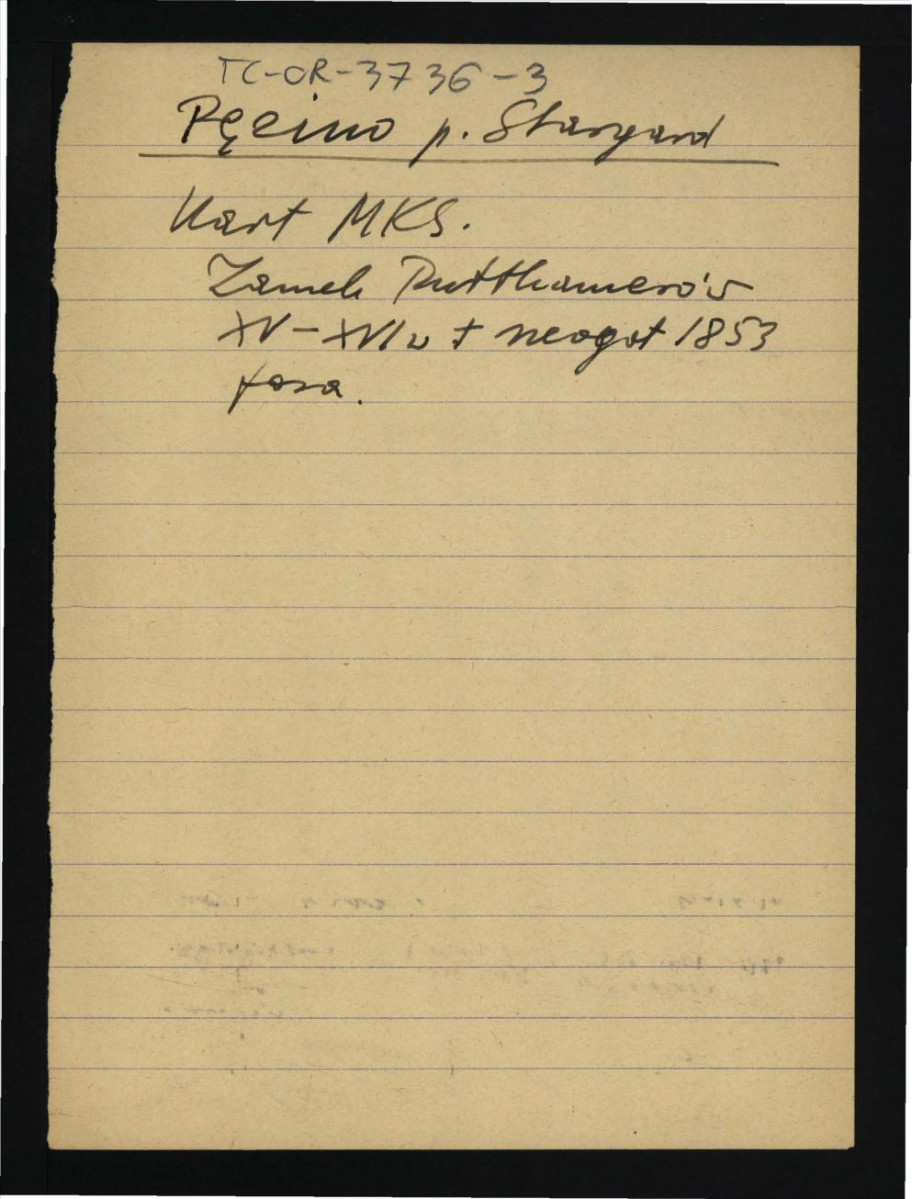 TC-OR-3736-3
Pęcino p. Stargard
Kart MKS.
Zamek Puttkamerów
XV-XVI w + neogot 1853
fosa.